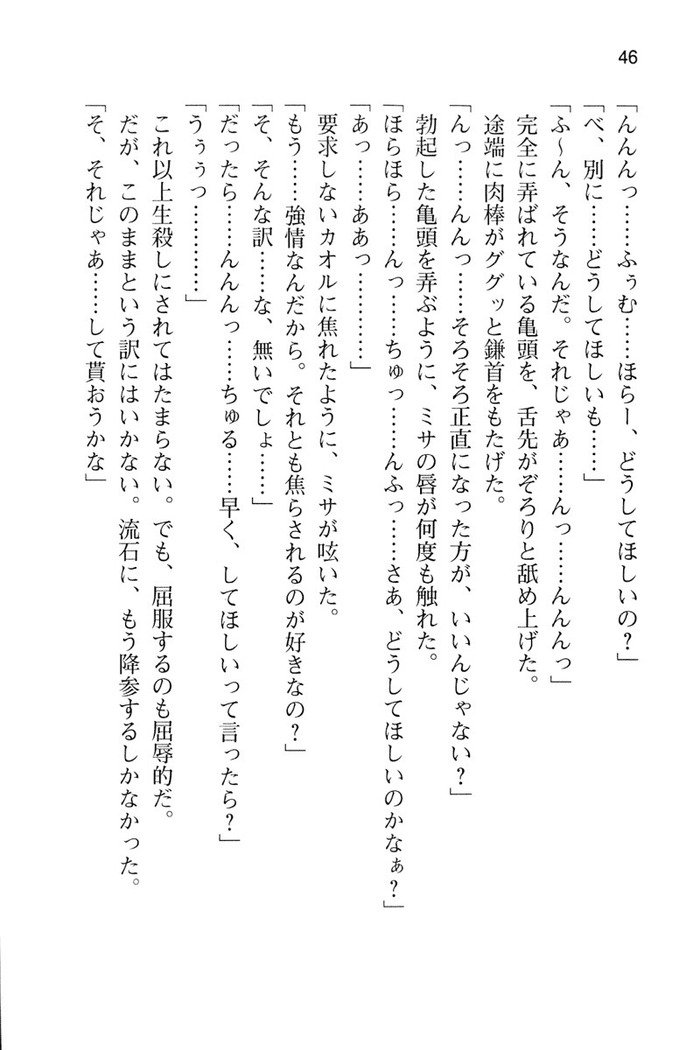 46
「んんんっ……ふぅむ……ほらー、どうしてほしいの？」
「べ、別に……どうしてほしいも……」
「ふ～ん、そうなんだ。それじゃあ……んっ……んんんっ」
完全に弄ばれている亀頭を、舌先がぞろりと舐め上げた。
途端に肉棒がググッと鎌首をもたげた。
「んっ……んんっ……そろそろ正直になった方が、いいんじゃない？」
勃起した亀頭を弄ぶように、ミサの唇が何度も触れた。
「ほらほら……んっ……ちゅっ……んふっ……さあ、どうしてほしいのかなぁ？」
「あっ……ああっ…………」
要求しないカオルに焦れたように、ミサが呟いた。
「もう……強情なんだから。それとも焦らされるのが好きなの？」
「そ、そんな訳……な、無いでしょ……」
「だったら……んんんっ……ちゅる……早く、してほしいって言ったら？」
「うぅぅっ…………」
これ以上生殺しにされてはたまらない。でも、屈服するのも屈辱的だ。
だが、このままという訳にはいかない。流石に、もう降参するしかなかった。
「そ、それじゃあ……して貰おうかな」